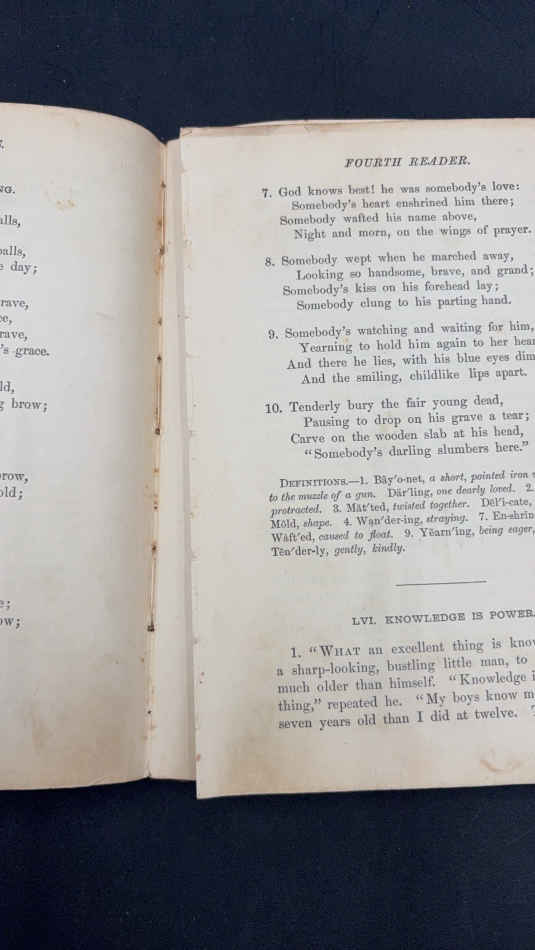 NG.
alls,
balls,
e day;
rave,
ce,
rave,
's grace.
ld,
g brow;
brow,
old;
e;
ow;
FOURTH READER.
7. God knows best! he was somebody's love:
Somebody's heart enshrined him there;
Somebody wafted his name above,
Night and morn, on the wings of prayer.
8. Somebody wept when he marched away,
Looking so handsome, brave, and grand;
Somebody's kiss on his forehead lay;
Somebody clung to his parting hand.
9. Somebody's watching and waiting for him,
Yearning to hold him again to her hear
And there he lies, with his blue eyes dim
And the smiling, childlike lips apart.
10. Tenderly bury the fair young dead,
Pausing to drop on his grave a tear;
Carve on the wooden slab at his head,
"Somebody's darling slumbers here."
DEFINITIONS.—1. Bāy'o-net, a short, pointed iron
to the muzzle of a gun. Där'ling, one dearly loved. 2.
protracted. 3. Măt'ted, twisted together. Dĕl'i-cate,
Mōld, shape. 4. Wạn'der-ing, straying. 7. En-shrīn
Wȧft'ed, caused to float. 9. Yẽarn'ing, being eager,
Tĕn'der-ly, gently, kindly.
LVI. KNOWLEDGE IS POWER.
1. "WHAT an excellent thing is know
a sharp-looking, bustling little man, to
much older than himself. "Knowledge i
thing," repeated he. "My boys know m
seven years old than I did at twelve.